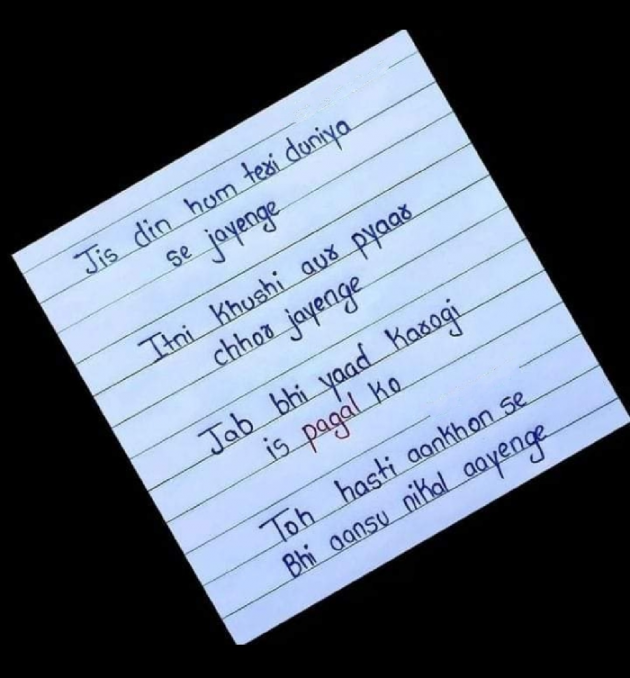 Jis din hum teri duniya
se jayenge
Itni Khushi aur pyaar
chhor jayenge
Jab bhi yaad Karogi
is pagal ko
Toh hasti aankhon se
Bhi aansu nikal aayenge